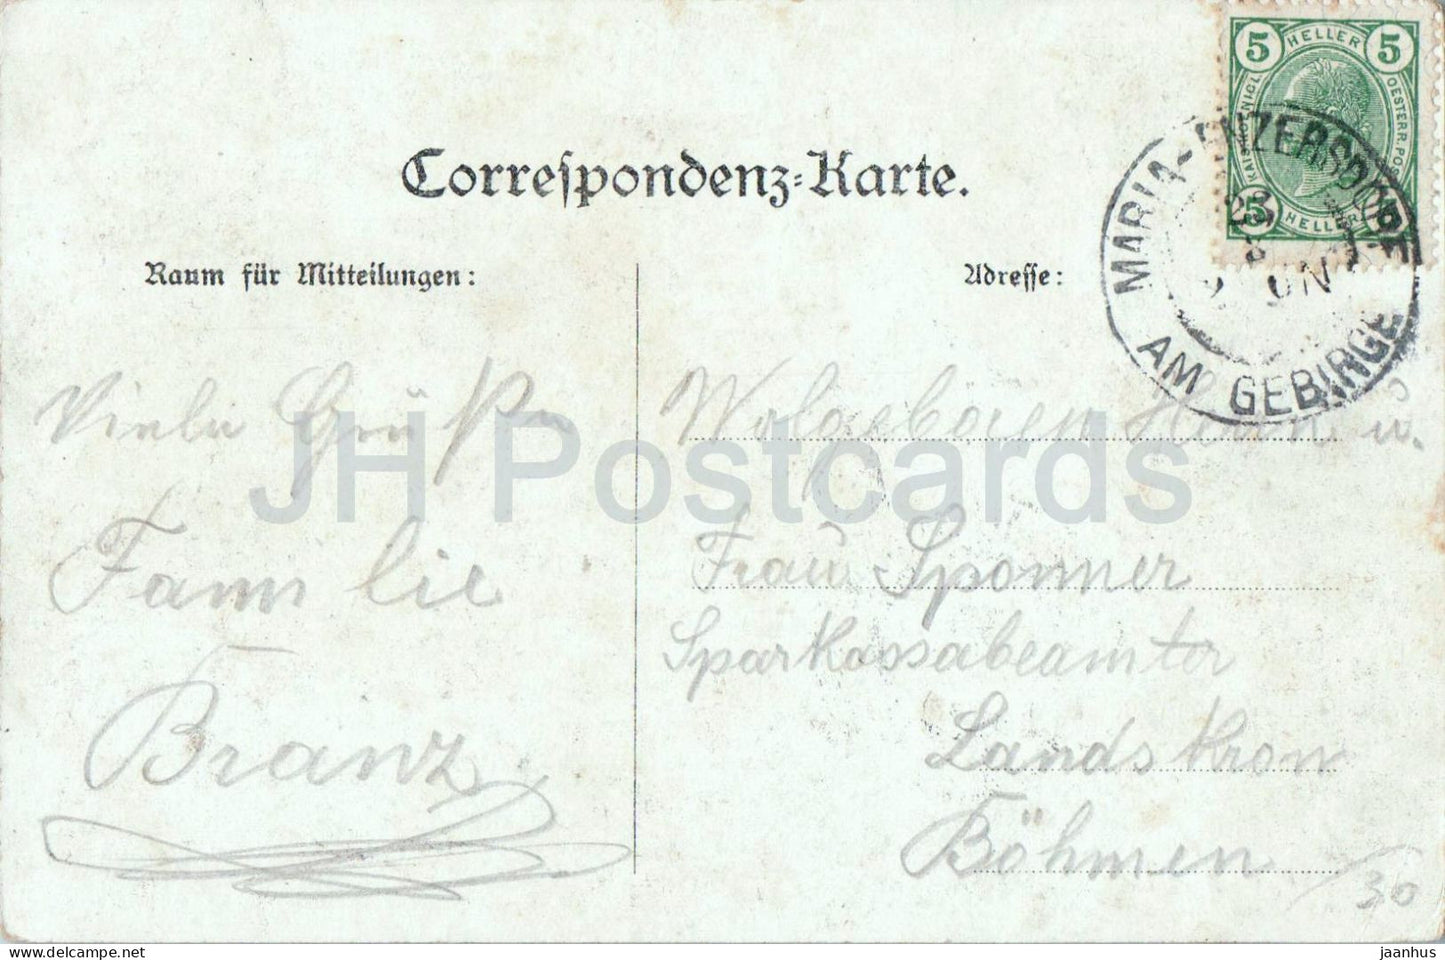 5 HELLER 5
KAIS. KÖNIGL. OESTERR. POST
5 HELLER 5
MARIA-ENZERSDORF
23
AM GEBIRGE
Correspondenz-Karte.
Raum für Mitteilungen:
Adresse:
Viele Grüße
Familie
Branz
Wolgeboren Herrn u.
Frau Sponner
Sparkassabeamter
Landskron
Böhmen
30
JH Postcards
www.delcampe.net
jaanhus